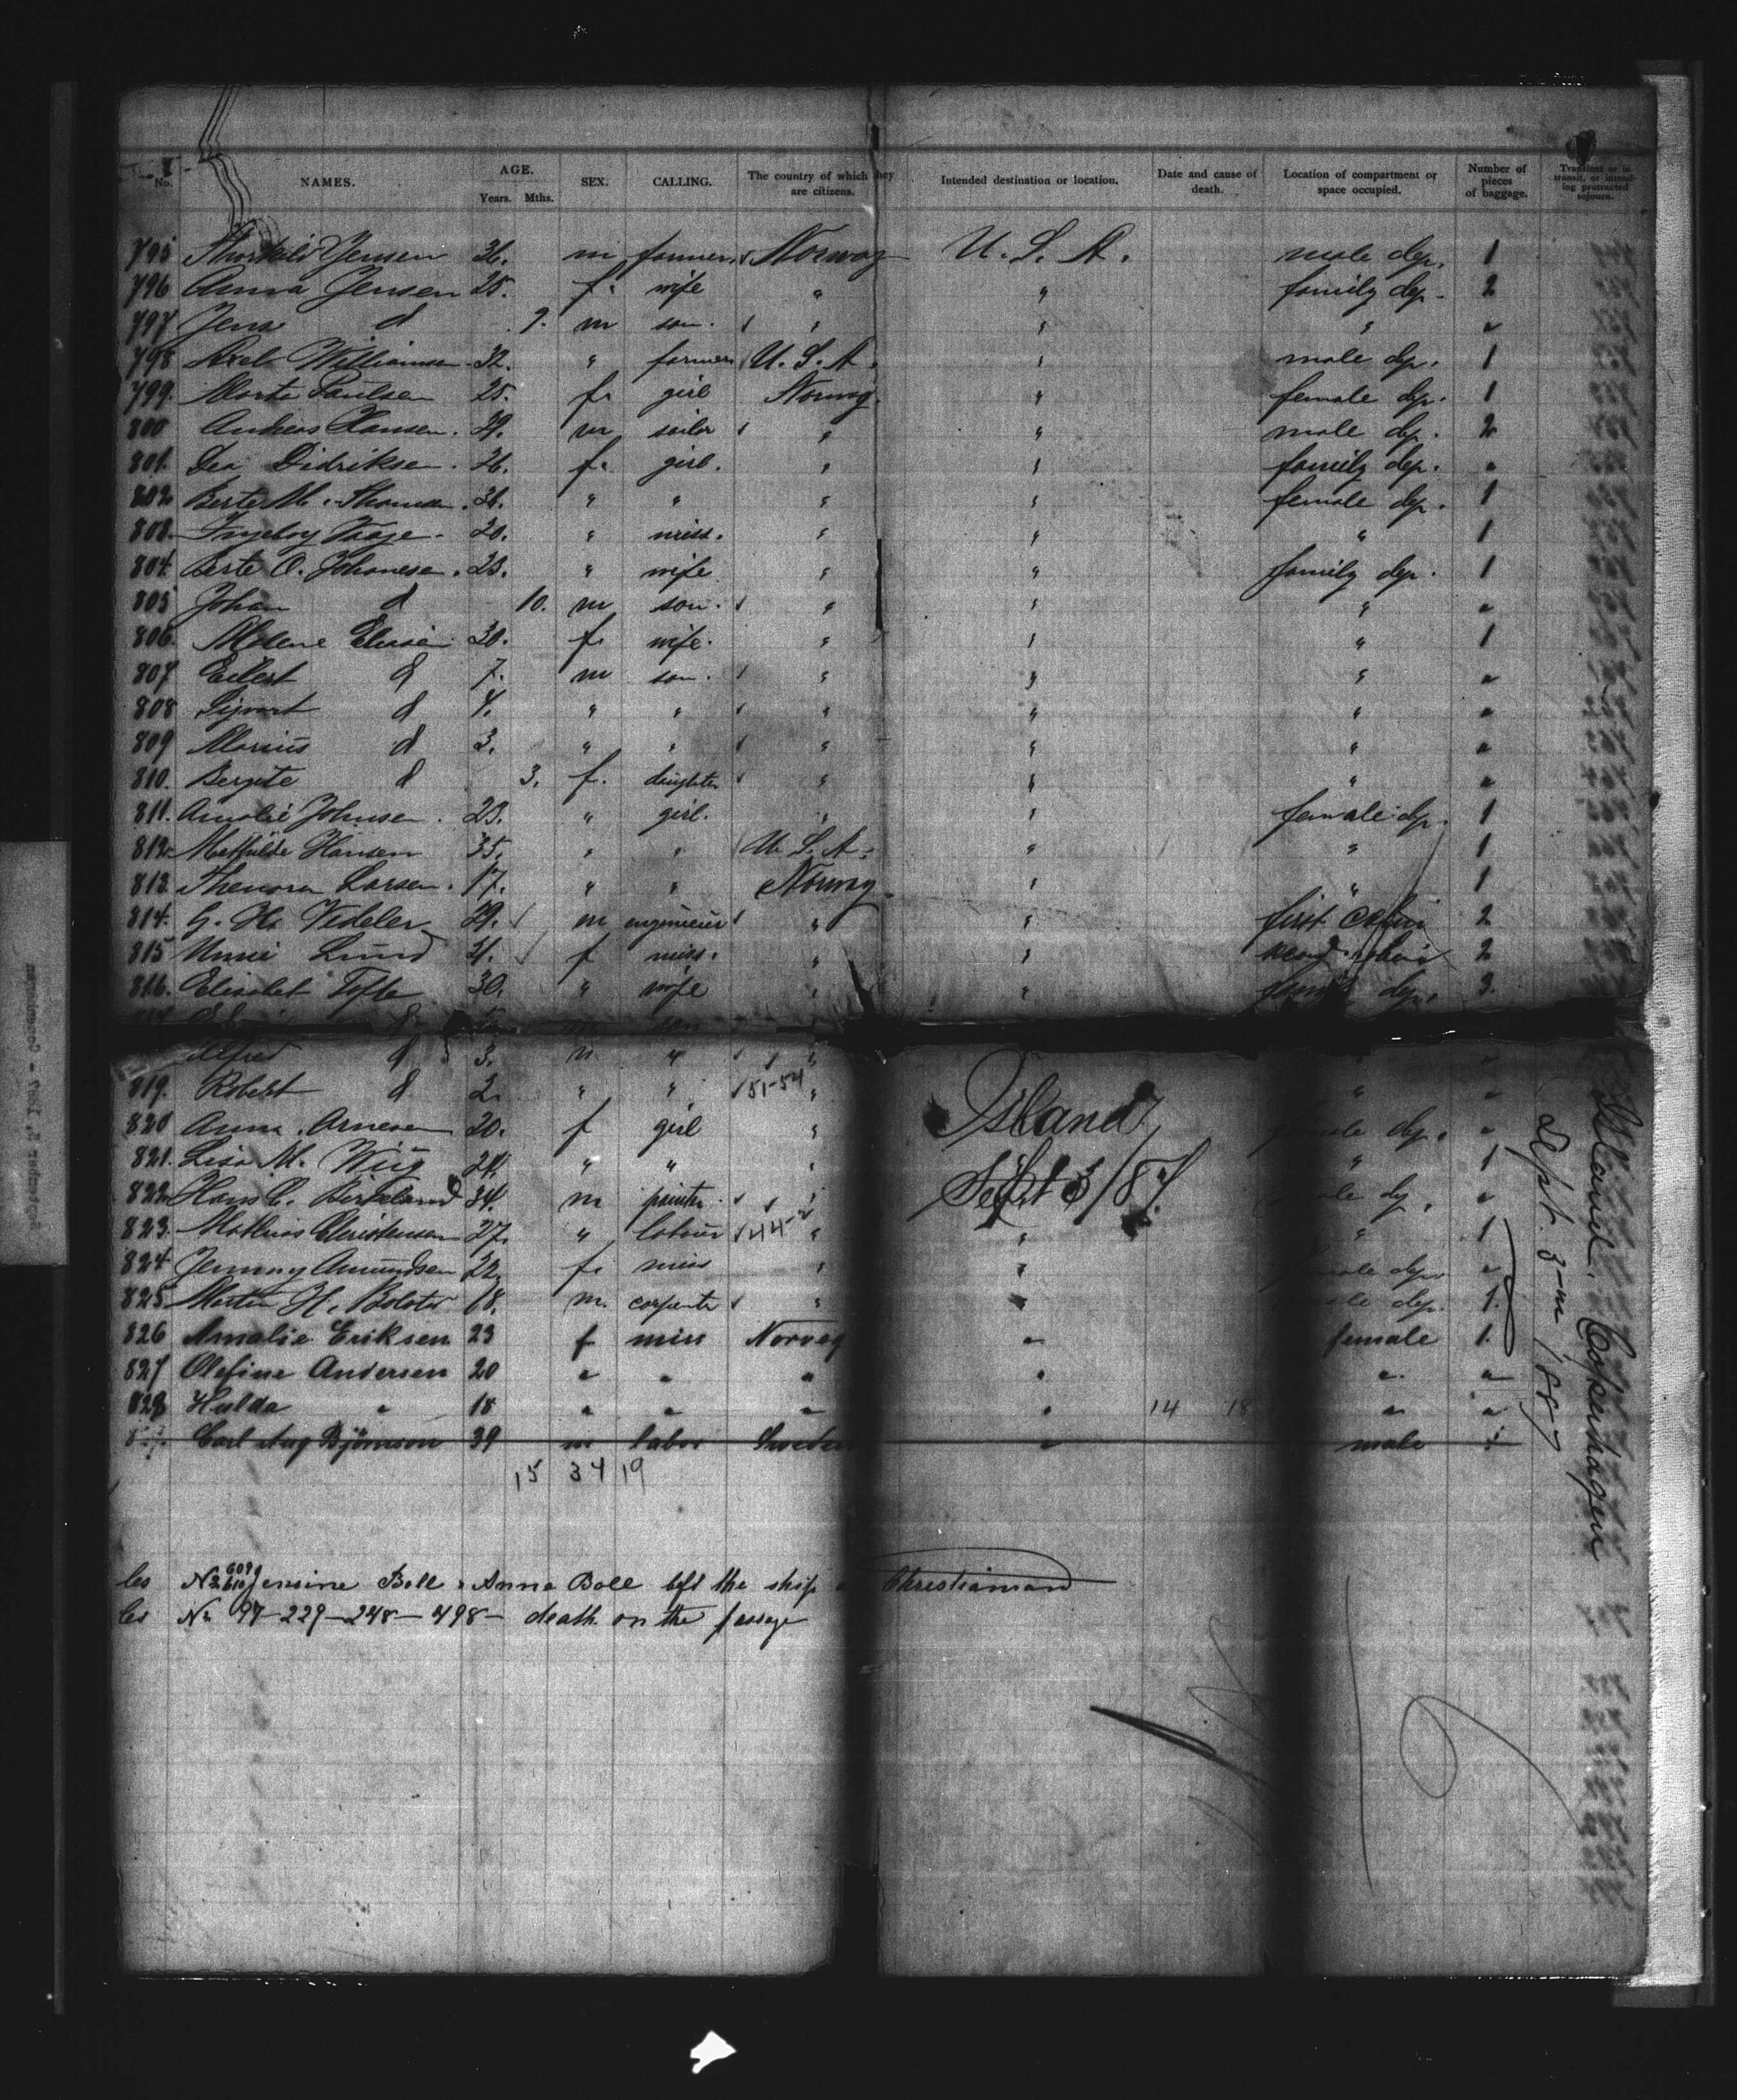 No. NAMES. AGE. Years. Mths. SEX. CALLING. The country of which they are citizens. Intended destination or location. Date and cause of death. Location of compartment or space occupied. Number of pieces of baggage. Transient or in transit, or intending protracted sojourn.
795 Thorkild Jensen 36. m farmer Norway U. S. A. male dep. 1
796 Anna Jensen 25. f. wife " " family dep. 2
797 Jens d 9. m son. " " " "
798 Axel Williamsen 32. " farmer U. S. A. " male dep. 1
799. Marta Paulsen 25. f. girl Norway " female dep. 1
800 Andreas Hansen. 29. m sailor " " male dep. 2
801. Lea Didriksen. 26. f. girl. " " family dep. "
802 Berte M. Thomsen. " " " " female dep. 1
803. Ingeborg 20. " miss. " " " 1
804. Berte O. Johanesen. 23. " wife " " family dep. 1
805 Johan d 10. m son. " " " "
806. Malene Eliasen 30. f. wife. " " " 1
807 Eilert d 7. m son. " " " "
808 Sigvart d 4. " " " " " "
809 Marius d 3. " " " " " "
810. Bergite d 3. f. daughter " " " "
811. Amalie Johnsen. 23. " girl. " " female dep. 1
812. Mathilde Hansen 35. " " U. S. A. " " 1
813. Thenora Larsen. 17. " " Norway " " 1
814. G. H. Vedeler 29. m engineeur " " first cabin 2
815 Unni Lund 31. f miss. " " 2
816. Elisabet Tofte 30. " wife " " family dep. 3.
Alfred d 3. m " "
819. Robert d 2. " " 51-54 " " "
820 Anna Arnesen 20. f girl " Island female dep. "
821. Lisa M. Wiig " " " " 1
822 Hans C. Birkeland 34. m painter " Sept 3/87. male dep. "
823. Mathias Christensen 27. " labour 44 " " " 1
824 Jenny Amundsen 22. f. miss " " female dep. "
825 Martin H. 18. m. carpenter " " male dep. 1.
826 Amalie Eriksen 23 f miss Norveg " female 1.
827 Olefine Andersen 20 " " " " " "
828 Hulda " 18 " " " " 14 18 " "
Carl Aug Björnson 39 m labor Sweden " male
15 34 19
No 609 610 Jensine Boll & Anna Boll left the ship Christiansand
No 97-229-248-498- death on the passage
Island. Copenhagen
Sept. 3-rd 1887